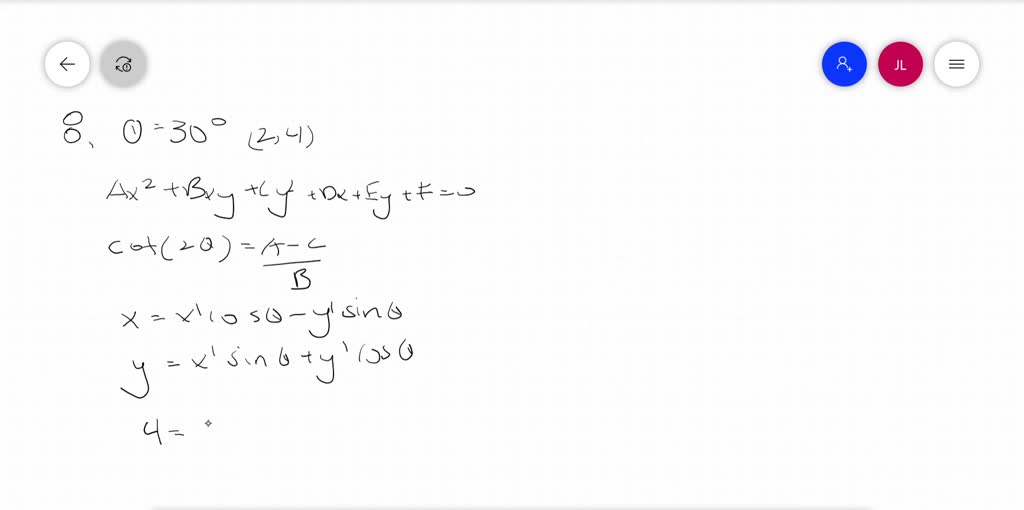 JL
8. θ = 30° (2,4)
Ax² + Bxy + Cy² + Dx + Ey + F = 0
cot(2θ) = A - C / B
x = x' cos θ - y' sin θ
y = x' sin θ + y' cos θ
4 =